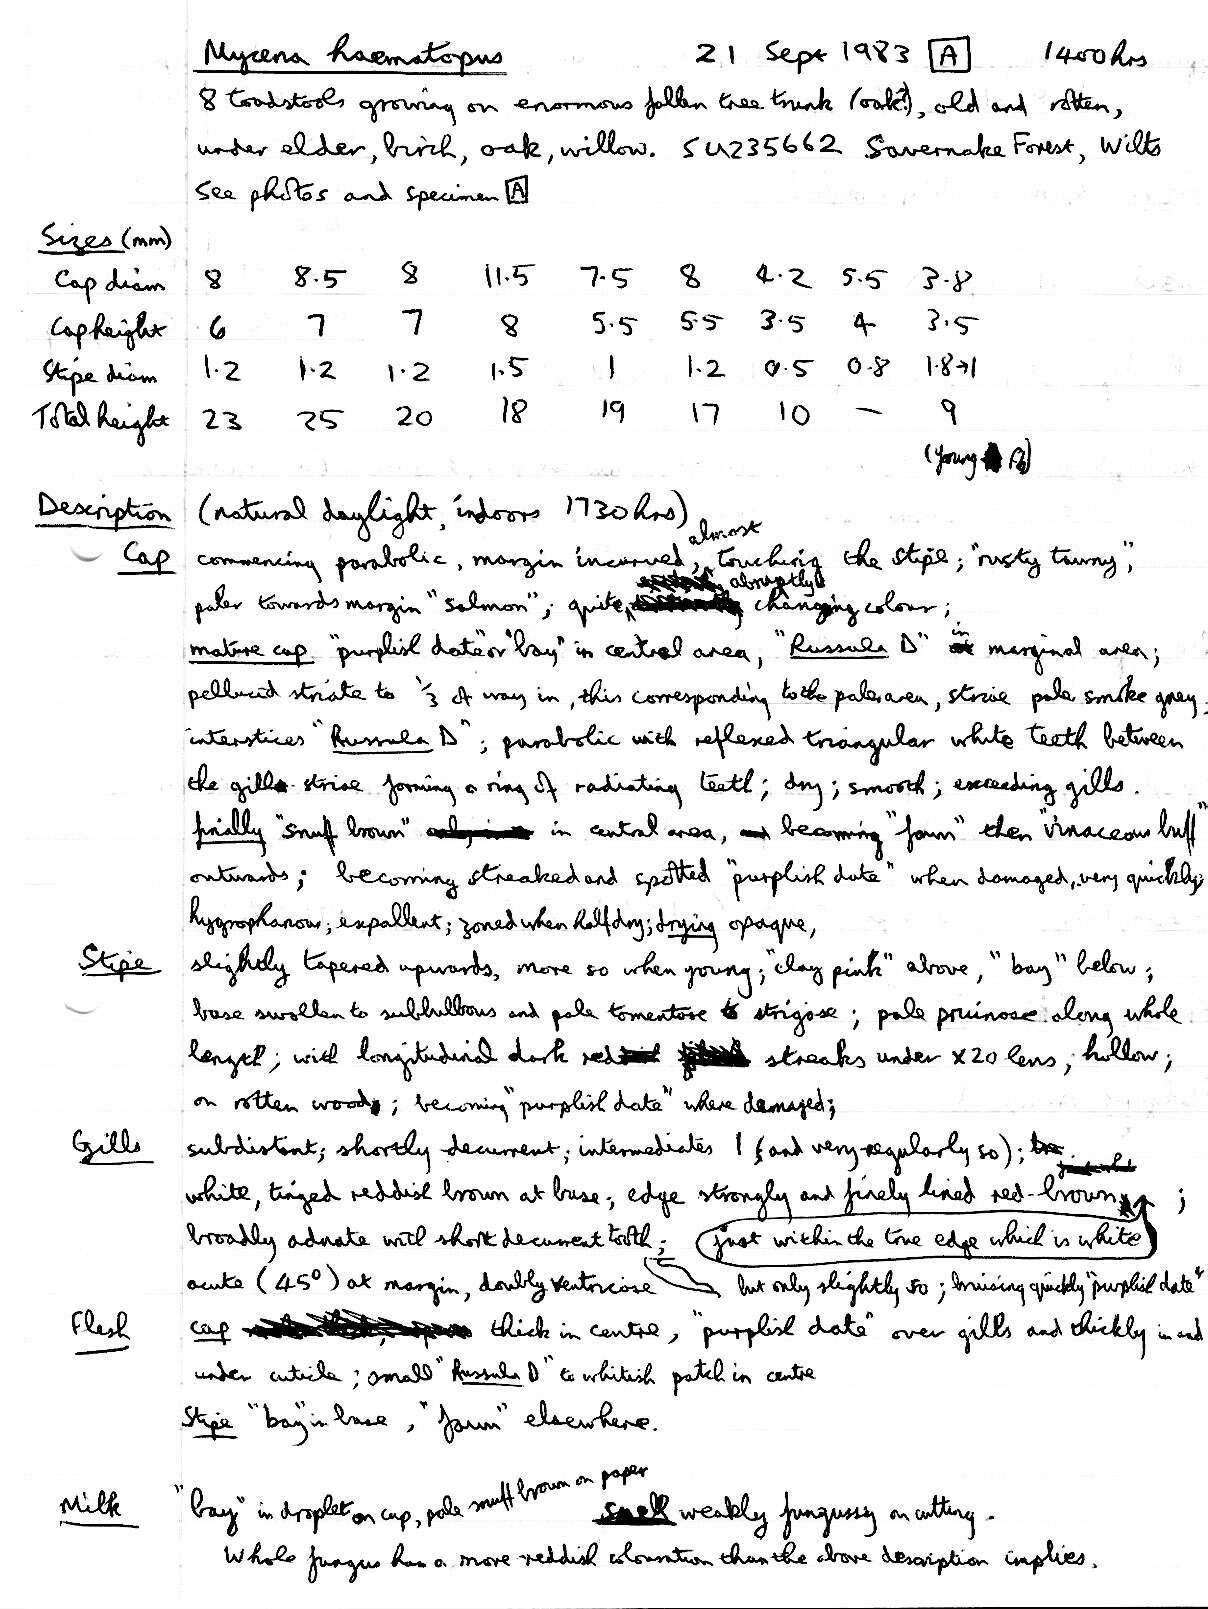 Mycena haematopus 21 Sept 1983 A 1400hrs
8 toadstools growing on enormous fallen tree trunk (oak?), old and rotten,
under elder, birch, oak, willow. SU235662 Savernake Forest, Wilts
See photos and specimen A
Sizes (mm)
Cap diam 8 8.5 8 11.5 7.5 8 4.2 5.5 3.8
Cap height 6 7 7 8 5.5 5.5 3.5 4 3.5
Stipe diam 1.2 1.2 1.2 1.5 1 1.2 0.5 0.8 1.8→1
Total height 23 25 20 18 19 17 10 — 9
(young)
Description (natural daylight, indoors 1730hrs)
Cap commencing parabolic, margin incurved, almost touching the stipe; "rusty tawny",
paler towards margin "salmon"; quite abruptly changing colour;
mature cap "purplish date" or "bay" in central area, "Russula D" in marginal area;
pellucid striate to 1/3 of way in, this corresponding to the pale area, striae pale smoke grey;
interstices "Russula D"; parabolic with reflexed triangular white teeth between
the gill striae forming a ring of radiating teeth; dry; smooth; exceeding gills.
finally "snuff brown" in central area, becoming "fawn" then "vinaceous buff"
outwards; becoming streaked and spotted "purplish date" when damaged, very quickly;
hygrophanous; expallent; zoned when half dry; drying opaque,
Stipe slightly tapered upwards, more so when young; "clay pink" above, "bay" below;
base swollen to subbulbous and pale tomentose to strigose; pale pruinose along whole
length; with longitudinal dark red streaks under x20 lens; hollow;
on rotten wood; becoming "purplish date" where damaged;
Gills subdistant; shortly decurrent; intermediates 1 (and very regularly so);
white, tinged reddish brown at base; edge strongly and finely lined red-brown ;
broadly adnate with short decurrent tooth; just within the true edge which is white
acute (45°) at margin, doubly ventricose but only slightly so; bruising quickly "purplish date"
Flesh cap thick in centre, "purplish date" over gills and thickly in and
under cuticle; small "Russula D" to whitish patch in centre
Stipe "bay" in base, "fawn" elsewhere.
Milk "bay" in droplet on cap, pale snuff brown on paper Smell weakly fungussy on cutting.
Whole fungus has a more reddish colouration than the above description implies.